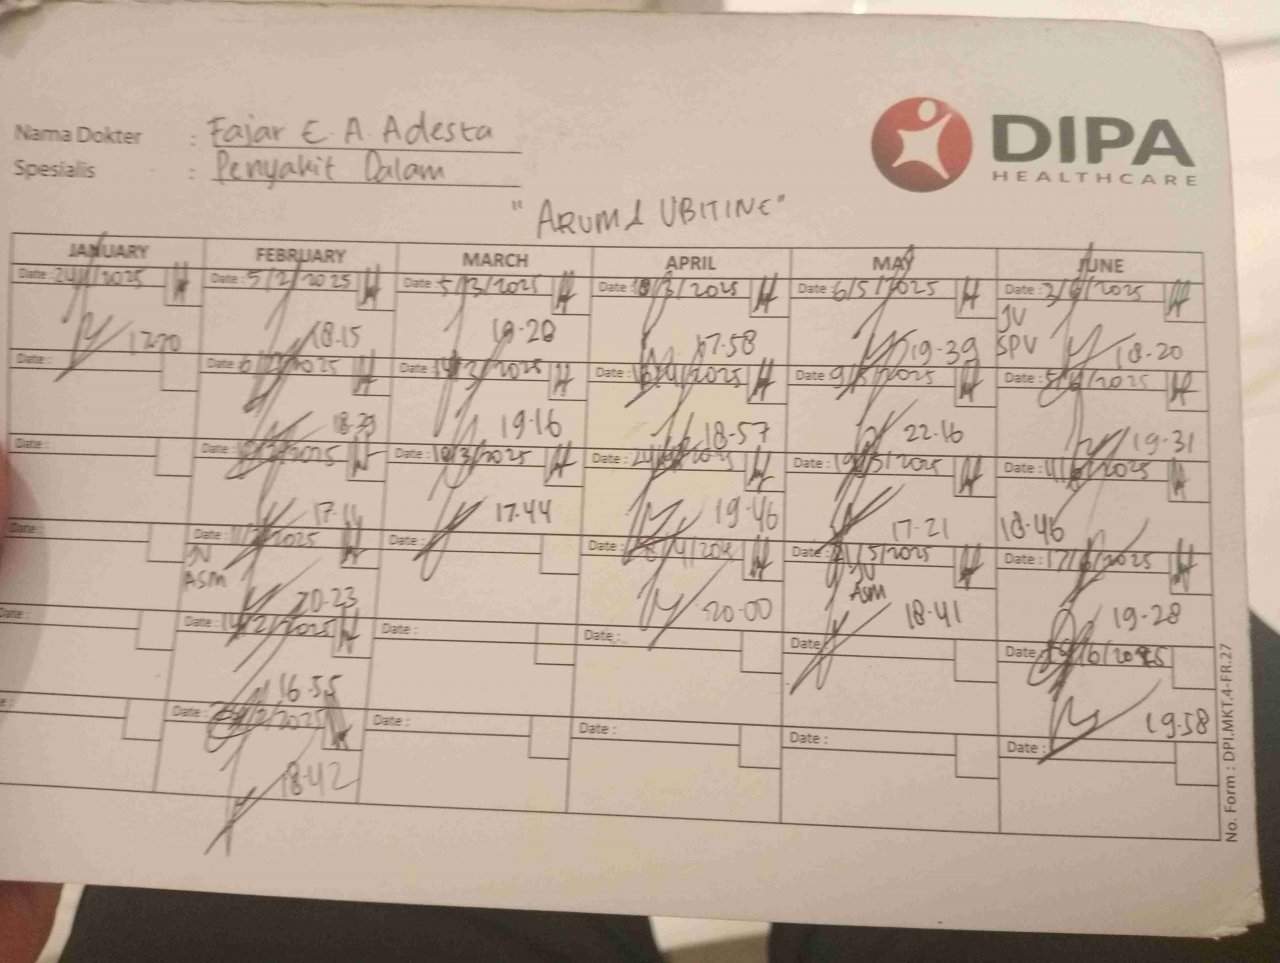 Nama Dokter : Fajar E. A. Adesta
Spesialis : Penyakit Dalam
DIPA
HEALTHCARE
"ARUM & UBITINE"
JANUARY FEBRUARY MARCH APRIL MAY JUNE
Date : 24/1/2025 Date : 5/2/2025 Date : 5/3/2025 Date : /3/2025 Date : 6/5/2025 Date : 3/6/2025
JV
SPV
18-15 18-28 17-58 19-39 18-20
Date : Date : 6/2/2025 Date : /3/2025 Date : /4/2025 Date : 9/5/2025 Date : 5/6/2025
18-39 19-16 18-57 22-16 19-31
Date : Date : /2025 Date : /3/2025 Date : Date : /5/2025 Date : 11/6/2025
17-14 17-44 19-46 17-21 18-46
Date : Date : /2025 Date : Date : /4/20 Date : /5/2025 Date : 17/6/2025
JV
ASM
JV
ASM
20-23 20-00 18-41 19-28
Date : Date : /2/2025 Date : Date : Date : Date : /6/2025
16-55 19-58
Date : Date : /2/2025 Date : Date : Date : Date :
18-42
No. Form : DPI.MKT.4-FR.27